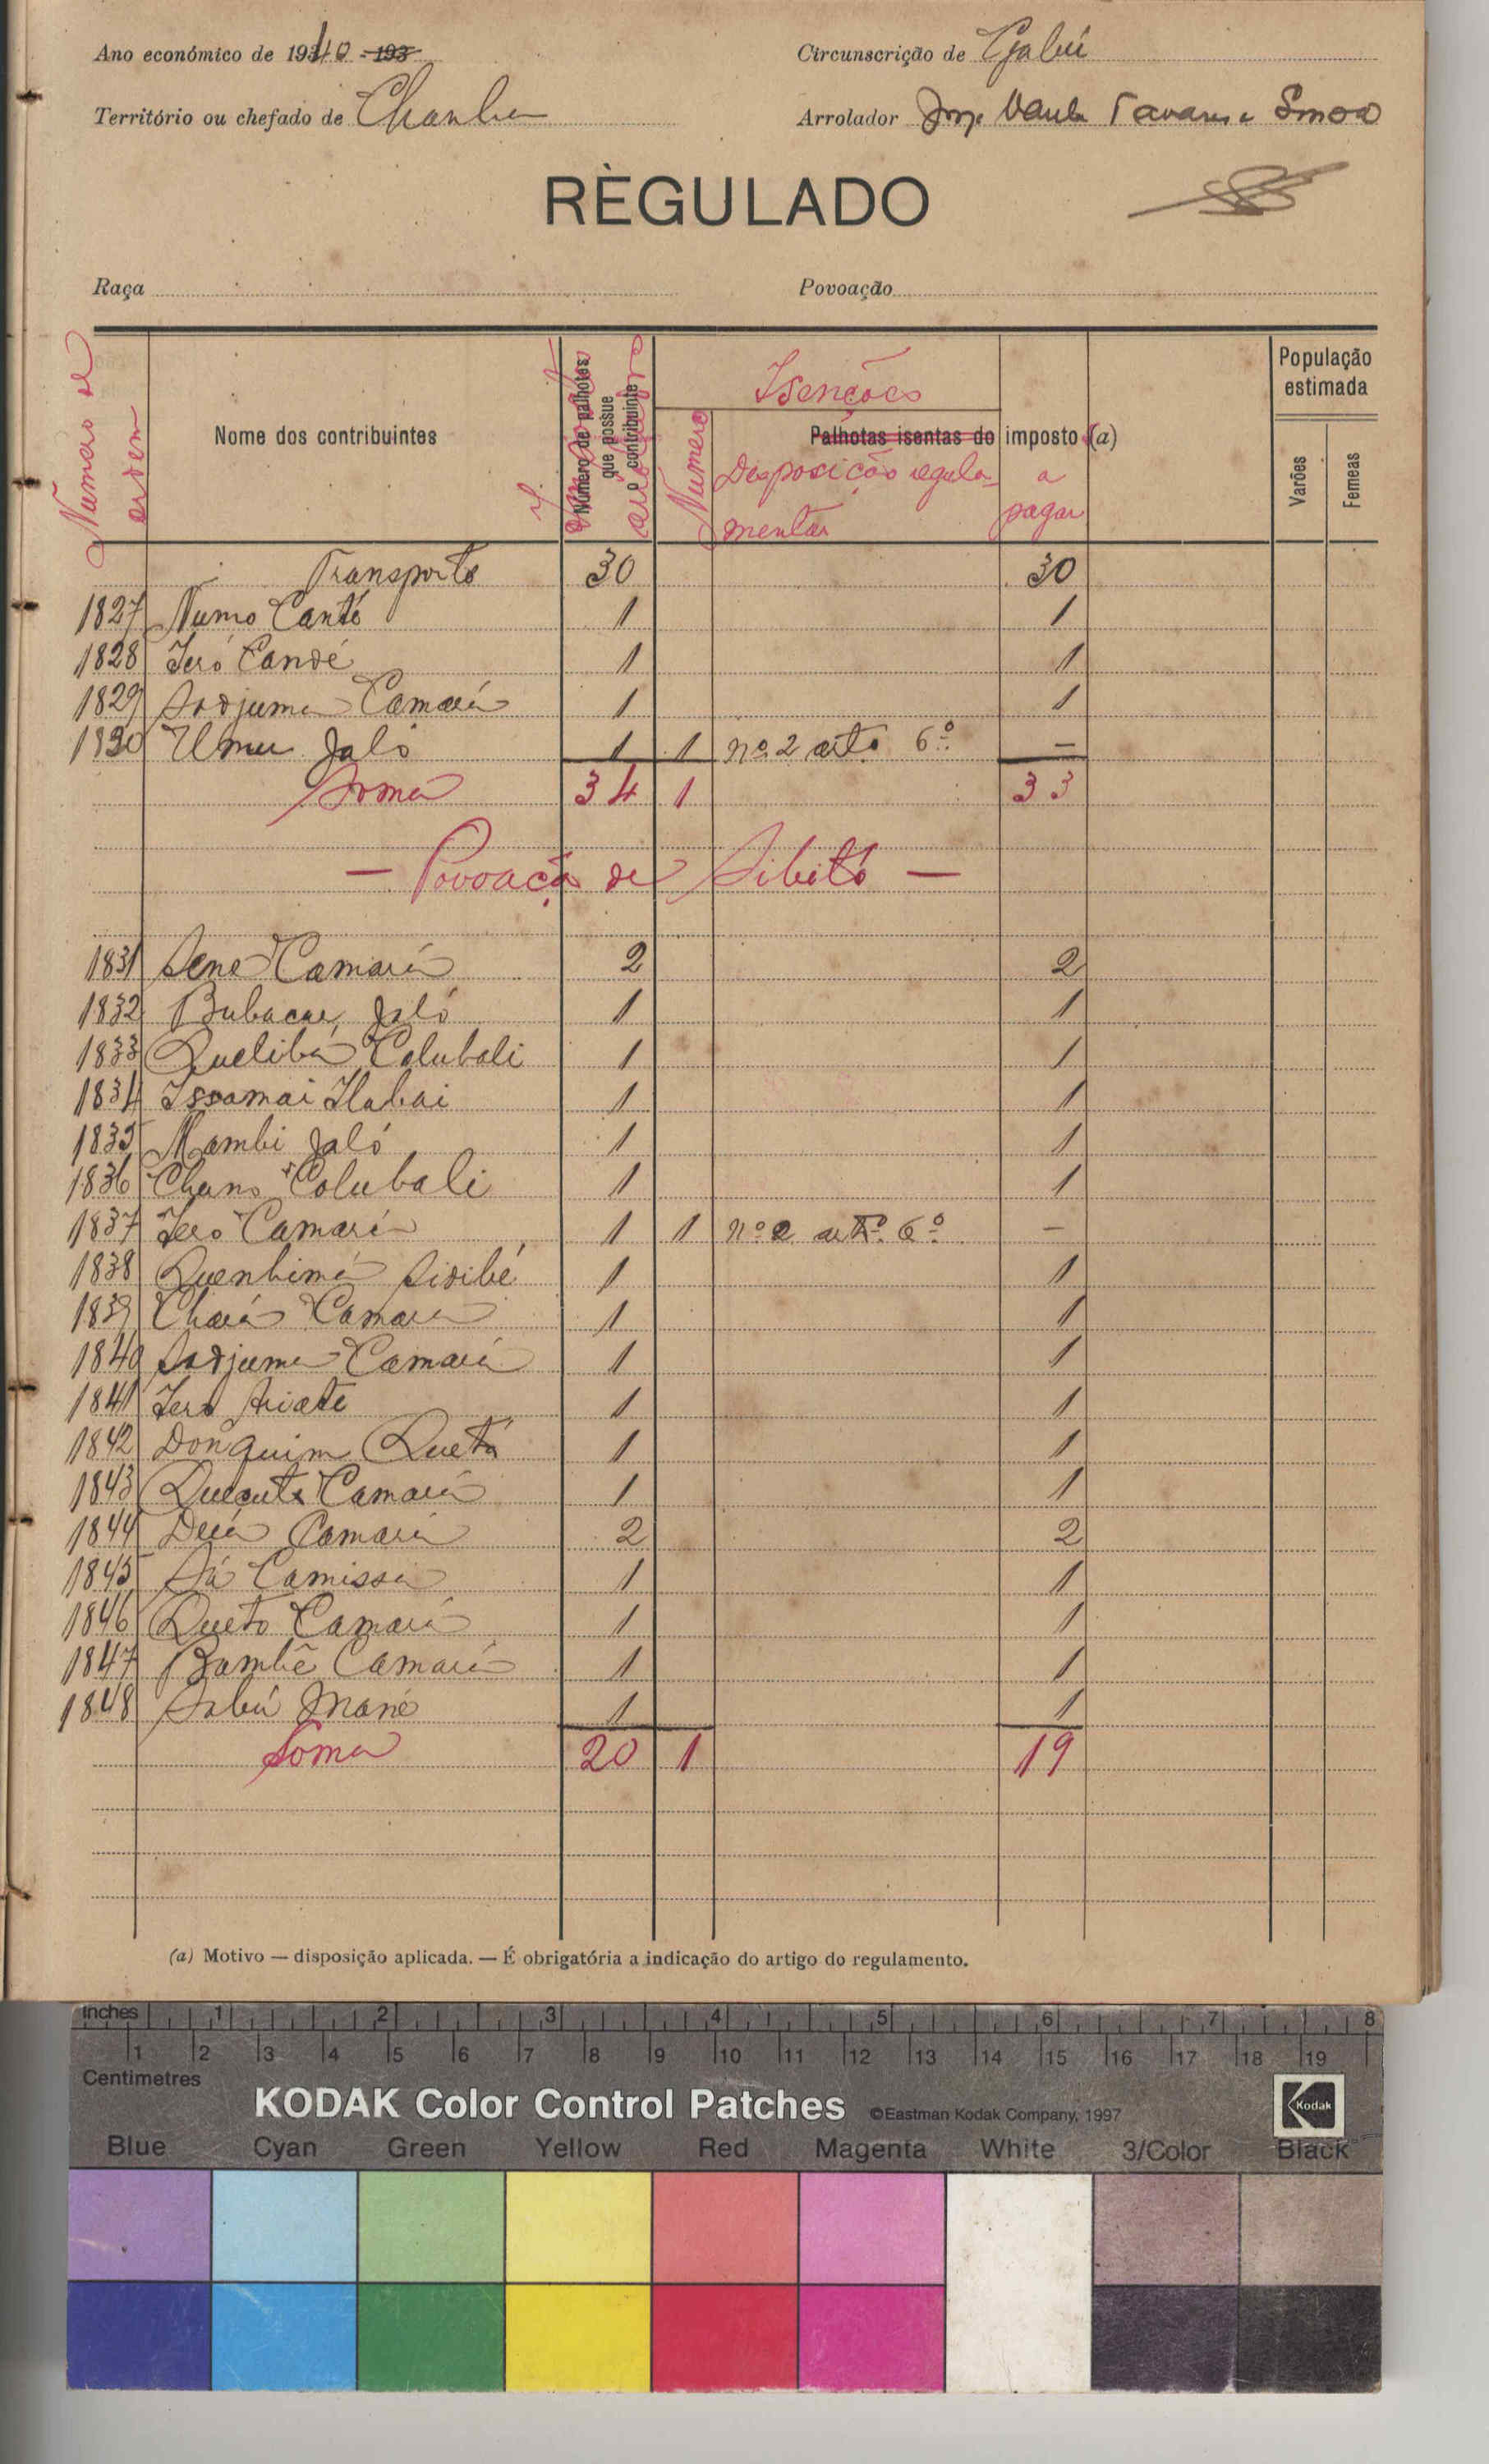 Ano económico de 1940 - 193
Circunscrição de Gabú
Território ou chefado de Chanha
Arrolador Jorge Tavares
RÈGULADO
Raça
Povoação
Numero de ordem
Nome dos contribuintes
Número de palhotas que possue o contribuinte
Isenções
Numero
Palhotas isentas do imposto (a)
Disposição regula-
mentar
a
pagar
População estimada
Varões
Femeas
Transporte 30 30
1827 Numo Canté 1 1
1828 Ieró Candé 1 1
1829 Sadjuma Camará 1 1
1830 Umu Jaló 1 1 nº 2 artº 6º —
Soma 34 1 33
— Povoação de Sibitó —
1831 Sene Camará 2 2
1832 Bubacar Jaló 1 1
1833 Quelibá Colubali 1 1
1834 Issamai 1 1
1835 Mambi Jaló 1 1
1836 Chano Colubali 1 1
1837 Iero Camará 1 1 nº 2 artº 6º —
1838 Quenhimá Sidibé 1 1
1839 Chará Camará 1 1
1840 Sadjuma Camará 1 1
1841 Iero 1 1
1842 Donquim Quetá 1 1
1843 Quecuta Camará 1 1
1844 Camará 2 2
1845 Sá Camissa 1 1
1846 Queto Camará 1 1
1847 Bambê Camará 1 1
1848 Sabú Mané 1 1
Soma 20 1 19
(a) Motivo — disposição aplicada. — É obrigatória a indicação do artigo do regulamento.
Inches 1 2 3 4 5 6 7 8
1 2 3 4 5 6 7 8 9 10 11 12 13 14 15 16 17 18 19
Centimetres
KODAK Color Control Patches ©Eastman Kodak Company, 1997 Kodak
Blue Cyan Green Yellow Red Magenta White 3/Color Black